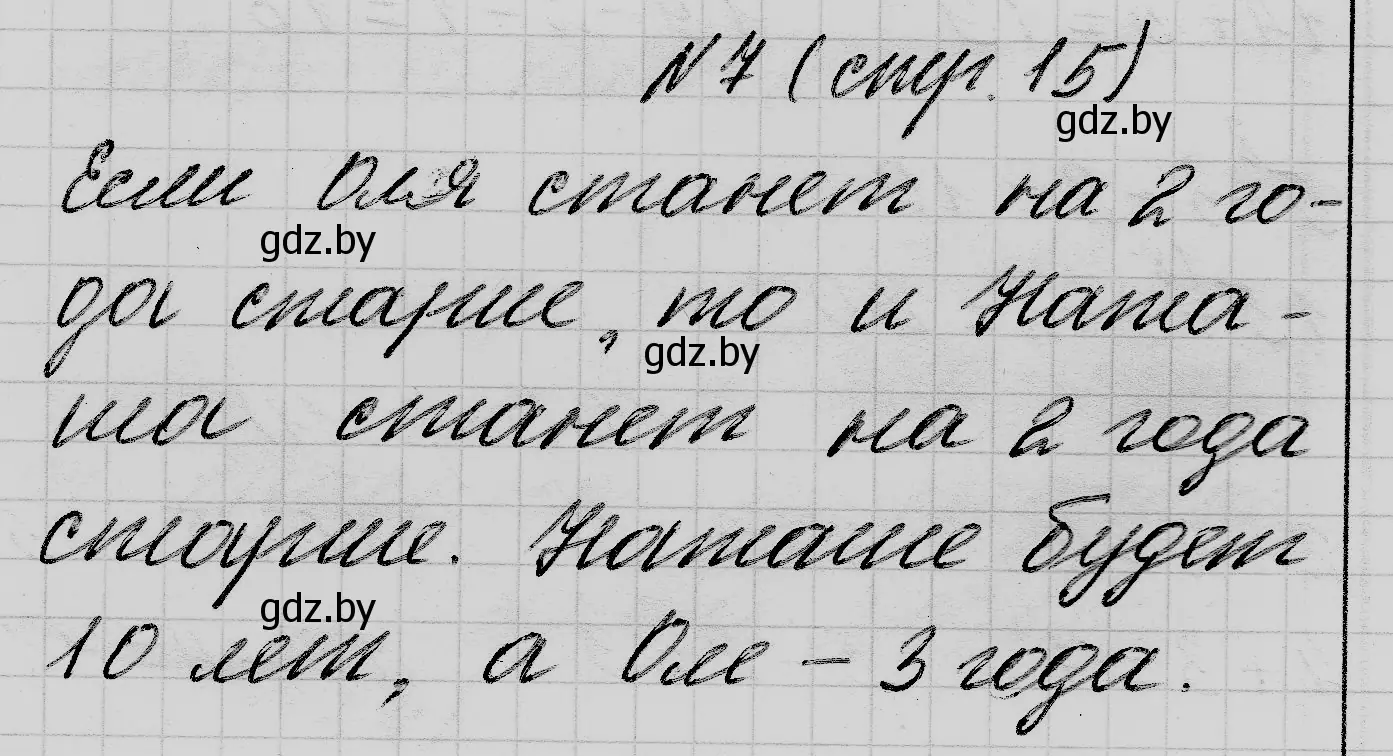 № 7 (стр. 15)
gdz.by
Если Оля станет на 2 го-
gdz.by
да старше, то и Ната-
gdz.by
ша станет на 2 года
старше. Наташе будет
gdz.by
10 лет, а Оле - 3 года.